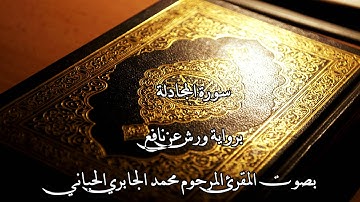 سورة المجادلة
برواية ورش عن نافع
بصوت المقرئ المرحوم محمد الجابري الحياني